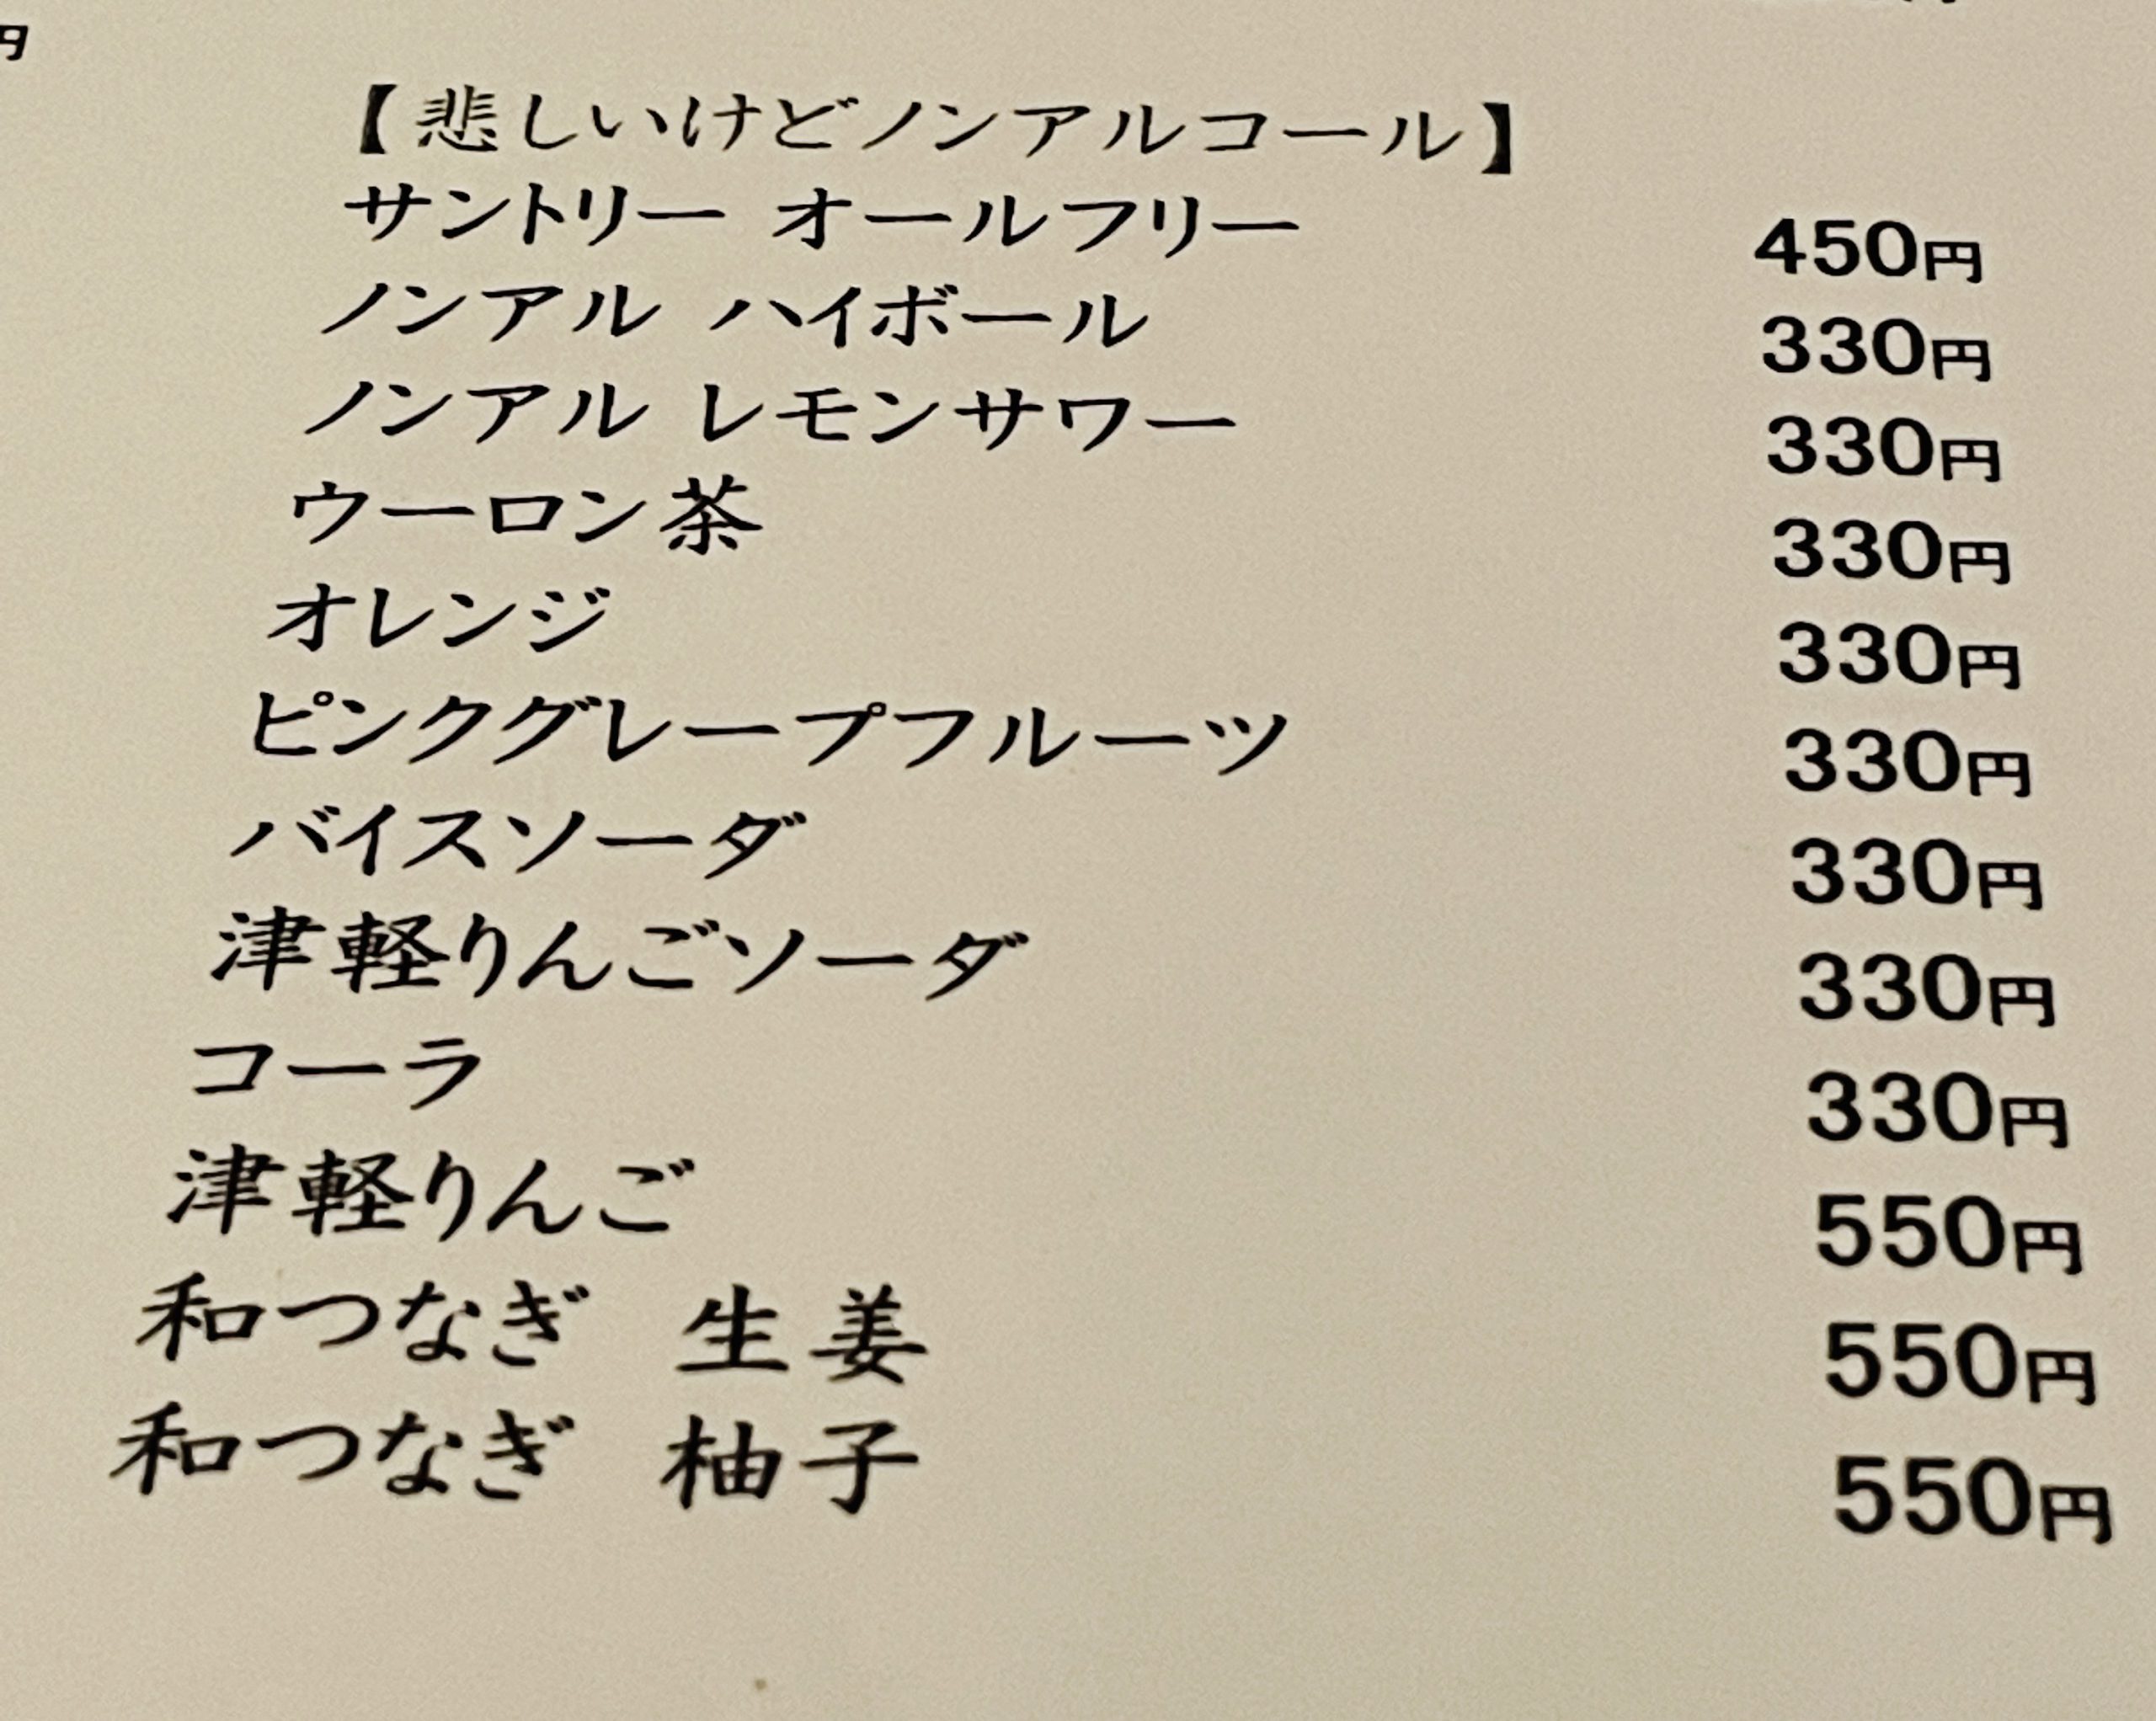 円
【悲しいけどノンアルコール】
サントリー オールフリー 450円
ノンアル ハイボール 330円
ノンアル レモンサワー 330円
ウーロン茶 330円
オレンジ 330円
ピンクグレープフルーツ 330円
バイスソーダ 330円
津軽りんごソーダ 330円
コーラ 330円
津軽りんご 550円
和つなぎ 生姜 550円
和つなぎ 柚子 550円